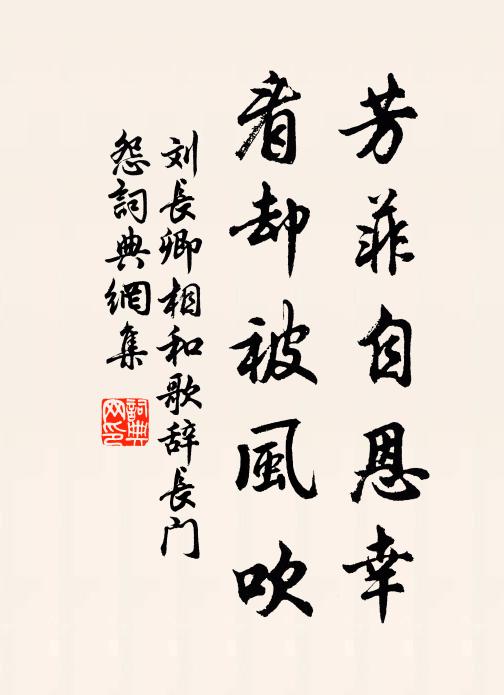 芳菲自恩幸
看却被風吹
刘長卿相和歌辞長门
怨詞典網集
詞典
网印